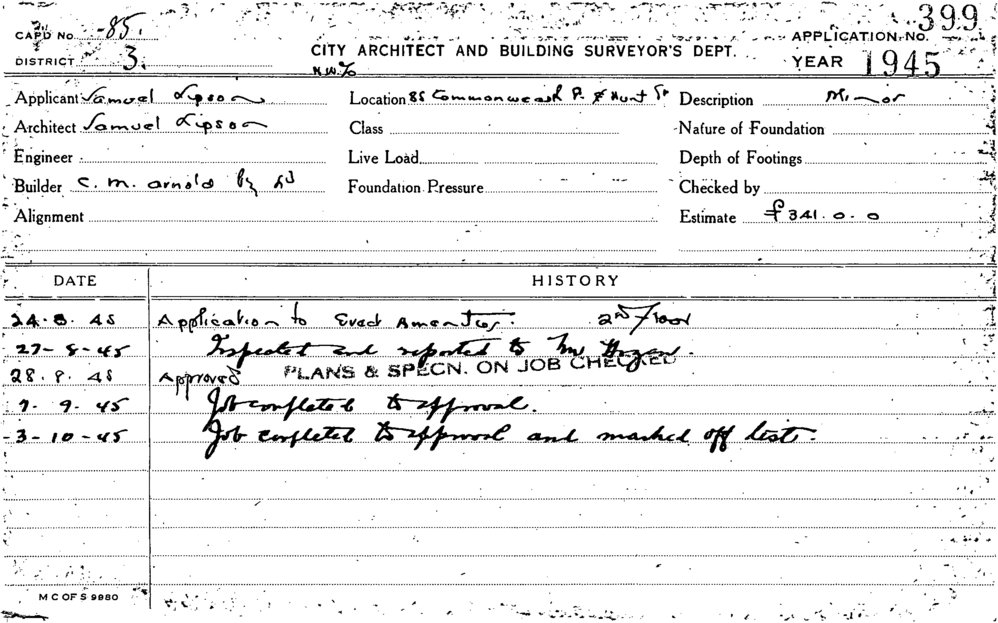 CARD No. 85.
399
APPLICATION NO.
DISTRICT 3.
CITY ARCHITECT AND BUILDING SURVEYOR'S DEPT.
YEAR 1945
Applicant Samuel Lipson
Location 85 Commonwealth & Hunt St
Description Minor
Architect Samuel Lipson
Class
Nature of Foundation
Engineer
Live Load
Depth of Footings
Builder C. M. Arnold
Foundation Pressure
Checked by
Alignment
Estimate £341.0.0
DATE
HISTORY
24.8.45 Application to Erect Amenities. 2nd Floor
27-8-45 Inspected and reported to Mr
PLANS & SPECN. ON JOB CHECKED
28.8.45 Approved
7.9.45 Job completed to approval.
3-10-45 Job completed to approval and marked off list.
M C OF S 9880